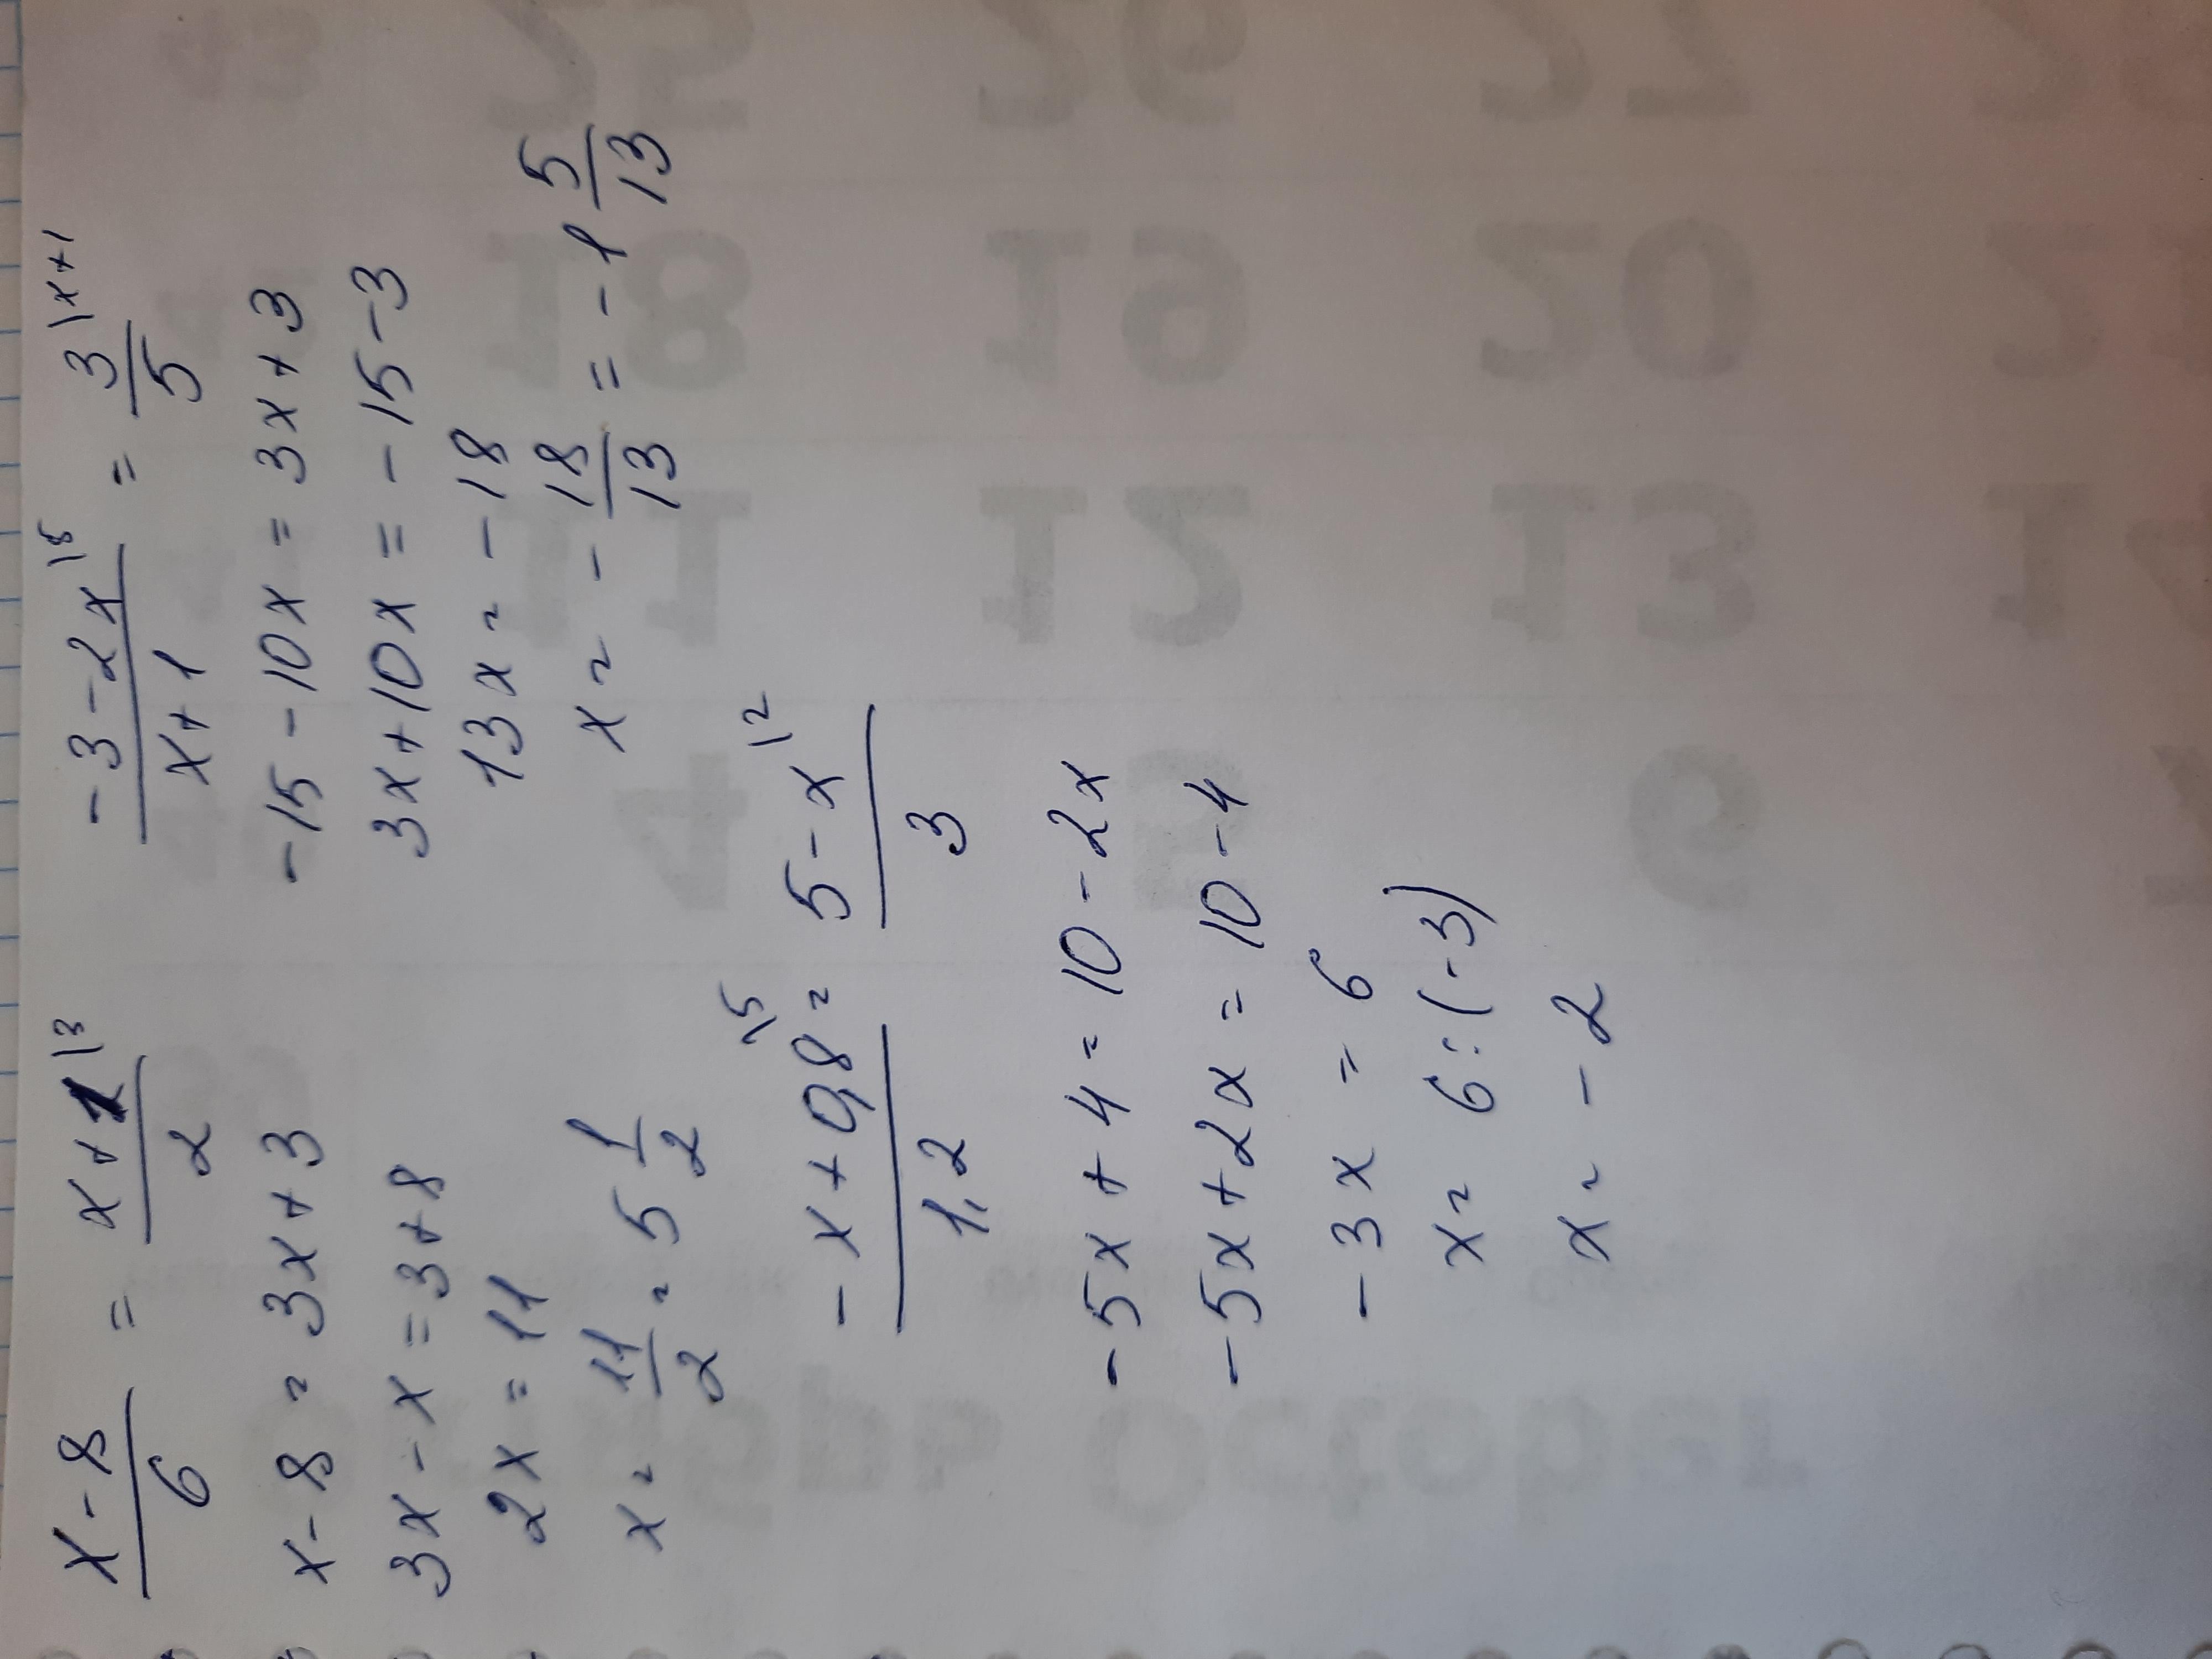 x-8/6 = x+1\3/2
x-8 = 3x+3
3x-x = 3+8
2x = 11
x = 11/2 = 5 1/2
-3-2x\5/x+1 = 3\x+1/5
-15-10x = 3x+3
3x+10x = -15-3
13x = -18
x = -18/13 = -1 5/13
-x+0,8\5/1,2 = 5-x\2/3
-5x+4 = 10-2x
-5x+2x = 10-4
-3x = 6
x = 6:(-3)
x = -2